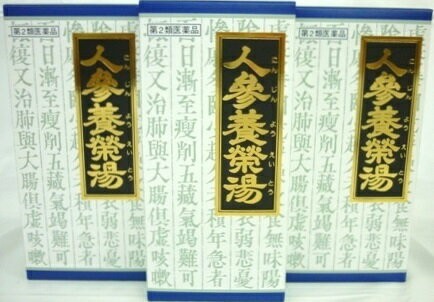 第2類医薬品
人參養榮湯
にんじんようえいとう
食無味陽
衰弱悲憂
積年急者
日漸至瘦削五藏氣竭難可
復又治肺與大腸俱虛咳嗽
第2類医薬品
人參養榮湯
にんじんようえいとう
食無味陽
衰弱悲憂
積年急者
日漸至瘦削五藏氣竭難可
復又治肺與大腸俱虛咳嗽
第2類医薬品
人參養榮湯
にんじんようえいとう
食無味陽
衰弱悲憂
積年急者
日漸至瘦削五藏氣竭難可
復又治肺與大腸俱虛咳嗽